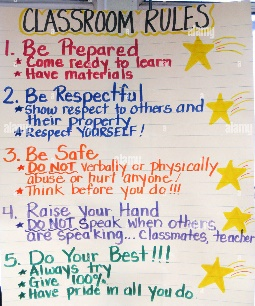 CLASSROOM RULES
1. Be Prepared
★ Come ready to learn
★ Have materials
2. Be Respectful
★ Show respect to others and
their property
★ Respect YOURSELF!
3. Be Safe
★ DO NOT verbally or physically
abuse or hurt anyone
★ Think before you do!!!
4. Raise Your Hand
★ DO NOT Speak when others
are speaking... classmates, teacher
5. Do Your Best!!!
★ Always try
★ Give 100%
★ Have pride in all you do